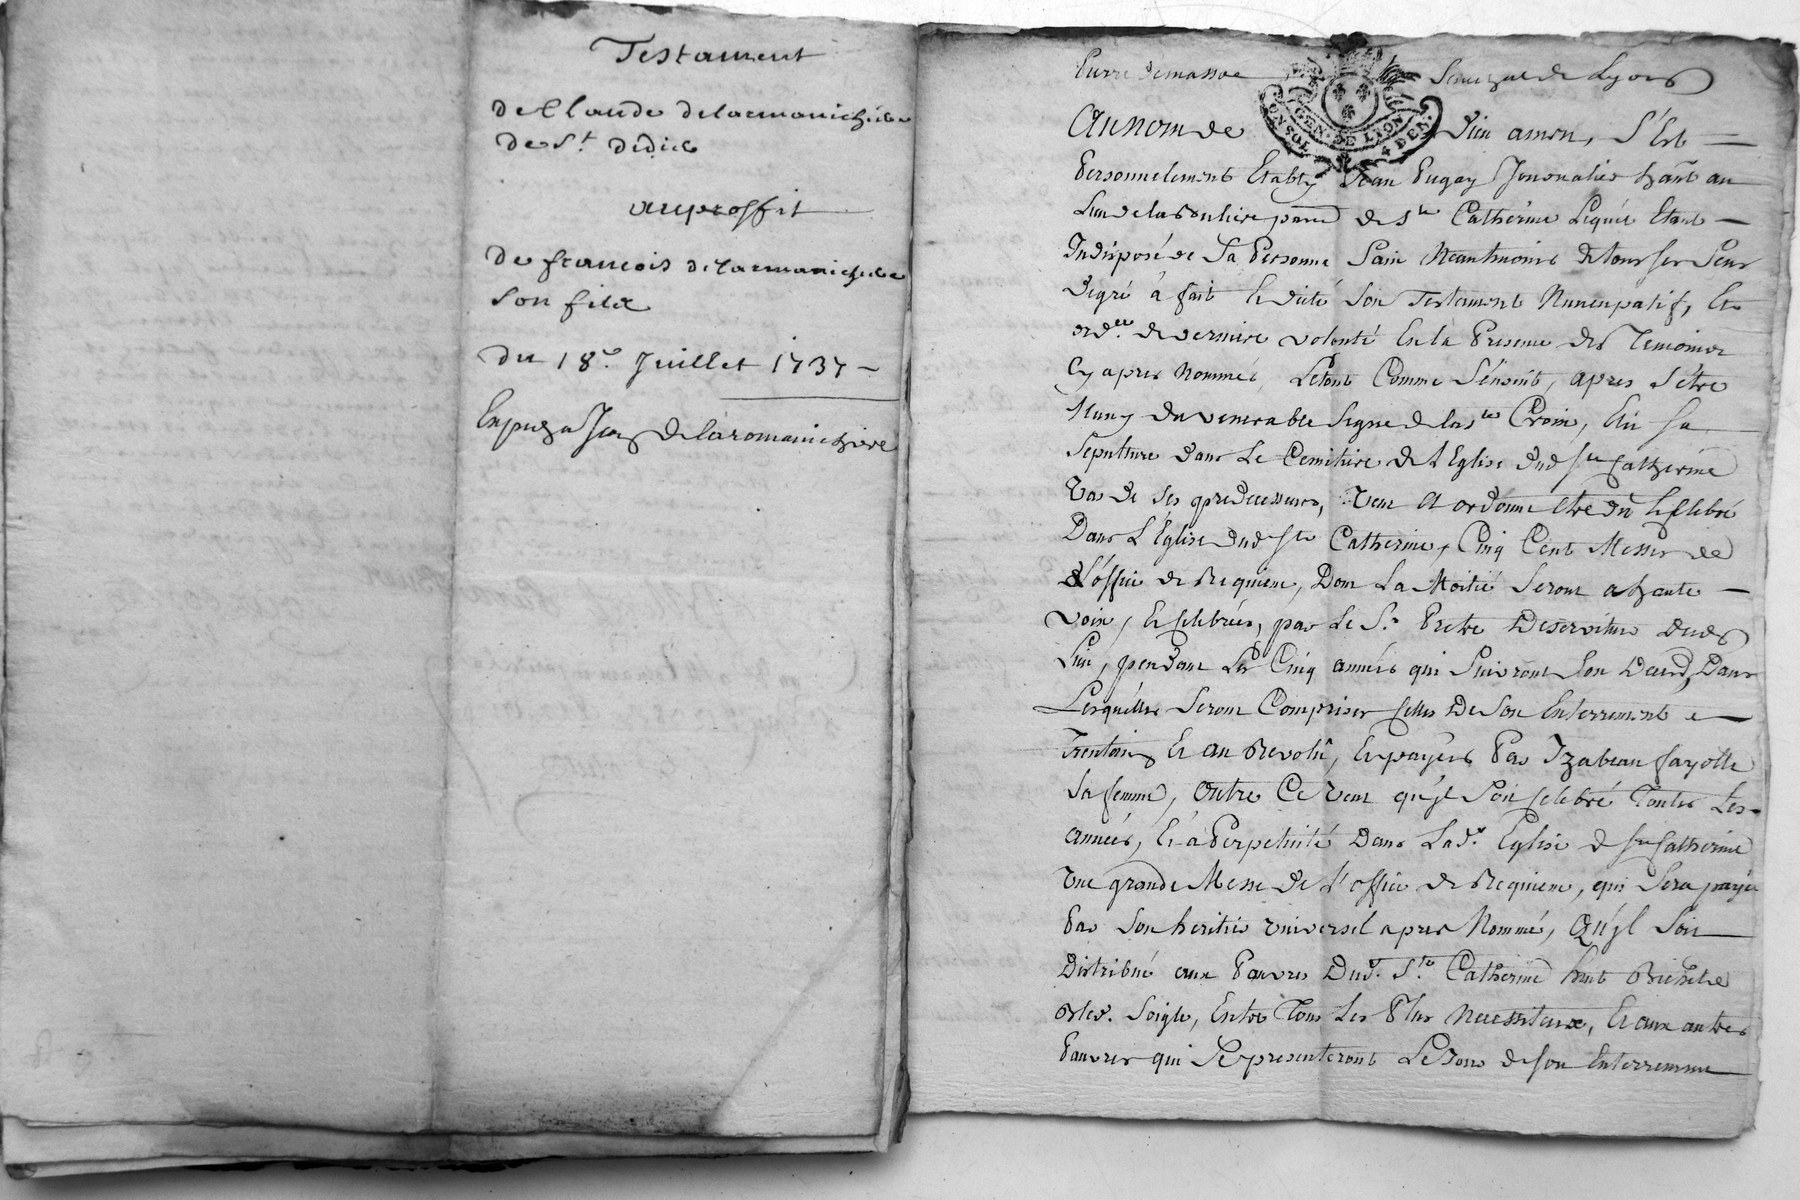 Testament
de Claude delaromanichere
de St. Didié
auproffit
de francois delaromanichere
son fils
du 18e. Juillet 1737
delaromanichere
GEN. DE LYON
4 DEN.
Senechal de Lyon
Au nom de Dieu amen, s'Est
Personnelement Etably Jean Pugay Journalier hant au
Lieu de la parr de Ste Catherine Lequel Etant
Indisposé de sa Personne sain Neantmoins de tous ses sens
degré à fait et dicté son Testament Nuncupatif, Et
ordce. de derniere volonté En la Presence des Temoins
Cy apres Nommés, Le tout Comme s'Ensuit, apres s'être
Muny du venerable signe de la ste Croix, Elû sa
sepulture dans Le Cemitiere de l'Eglise dud Ste Catherine
Vas de ses predecesseurs, veut et ordonne être dit et Celebré
Dans L'Église dud Ste Catherine, Cinq Cent Messes de
L'office de Requiem, Dont La Moitié seront a haute
voix, et Celebrées, par Le Sr. Pretre Deserviteur dud
Lieu, pendant Les Cinq années qui suivront son Deced, Dans
Lesquelles seront Comprises celles De son Enterrement
Trentain Et an Revolû, Et payées Par Izabeau fayolle
sa femme, Outre Ce veut qu'yl soit Celebré Toutes Les
années, Et à Perpetuité Dans Lade. Eglise de Ste Catherine
Une grande Messe de L'office de Requiem, qui sera payée
Par son heritier universel apres Nommé, Qu'yl soit
Distribué aux Pauvres Dud. Ste. Catherine huit Bichets
Bled. soigle, Entre Tous Les Plus Necessiteux, Et aux autres
Pauvres qui se presenteront Le Jour de son Enterrement